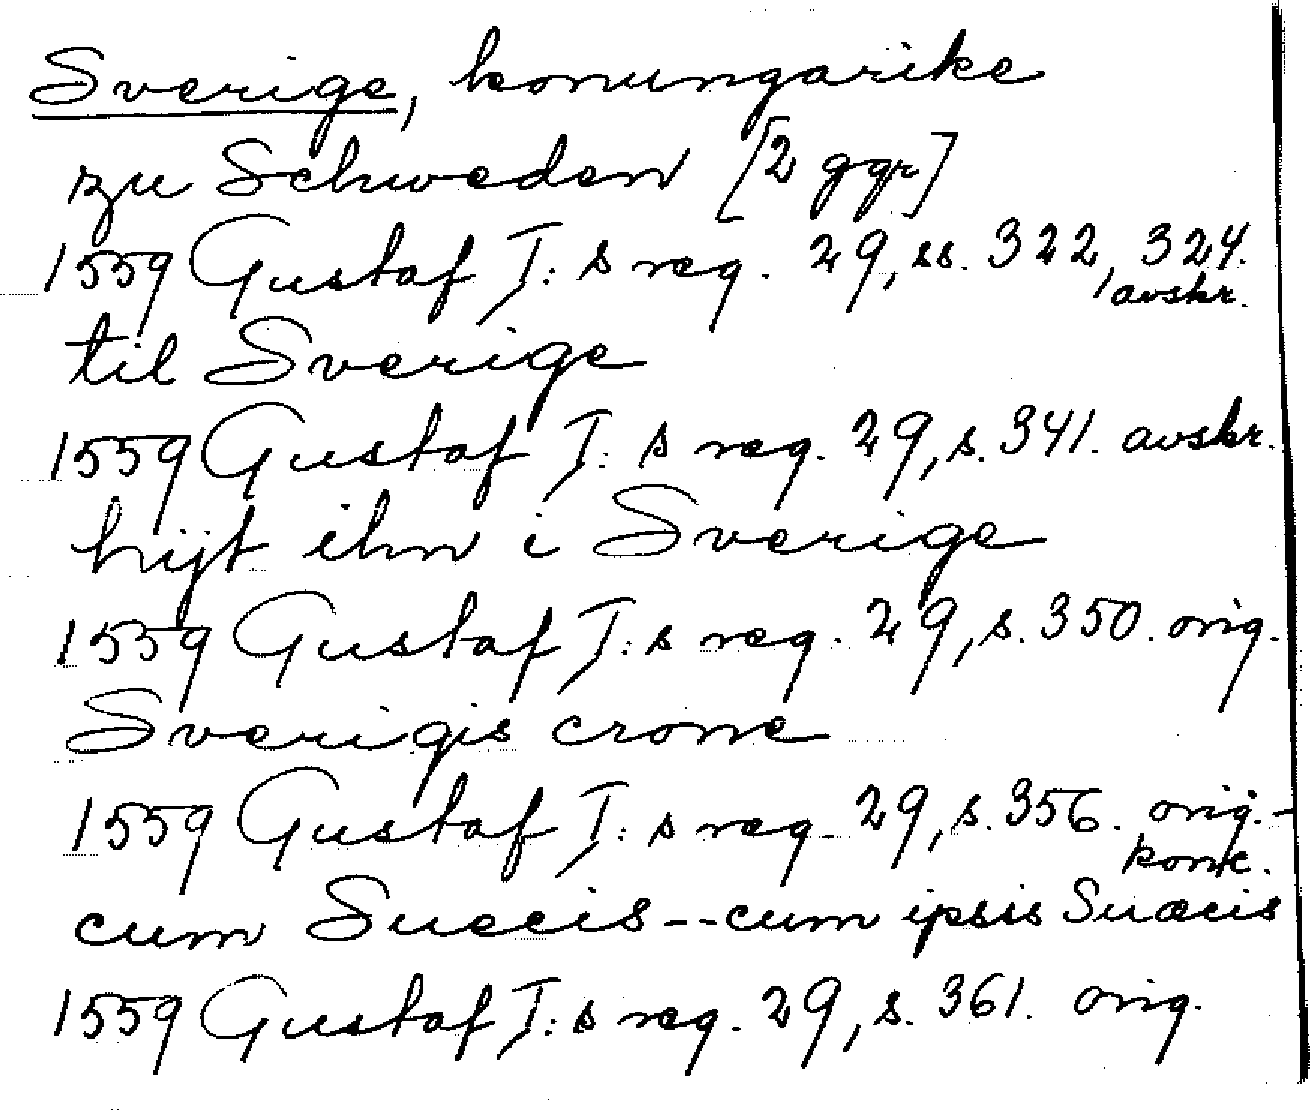 Sverige, konungarike
zu Schweden [2 ggr]
1559 Gustaf I:s reg. 29, ss. 322, 324.
avskr.
til Sverige
1559 Gustaf I:s reg. 29, s. 341. avskr.
hijt ihn i Sverige
1559 Gustaf I:s reg. 29, s. 350. orig.
Sverigis crone
1559 Gustaf I:s reg. 29, s. 356. orig.-
konc.
cum Suecis--cum ipsis Suæcis
1559 Gustaf I:s reg. 29, s. 361. orig.